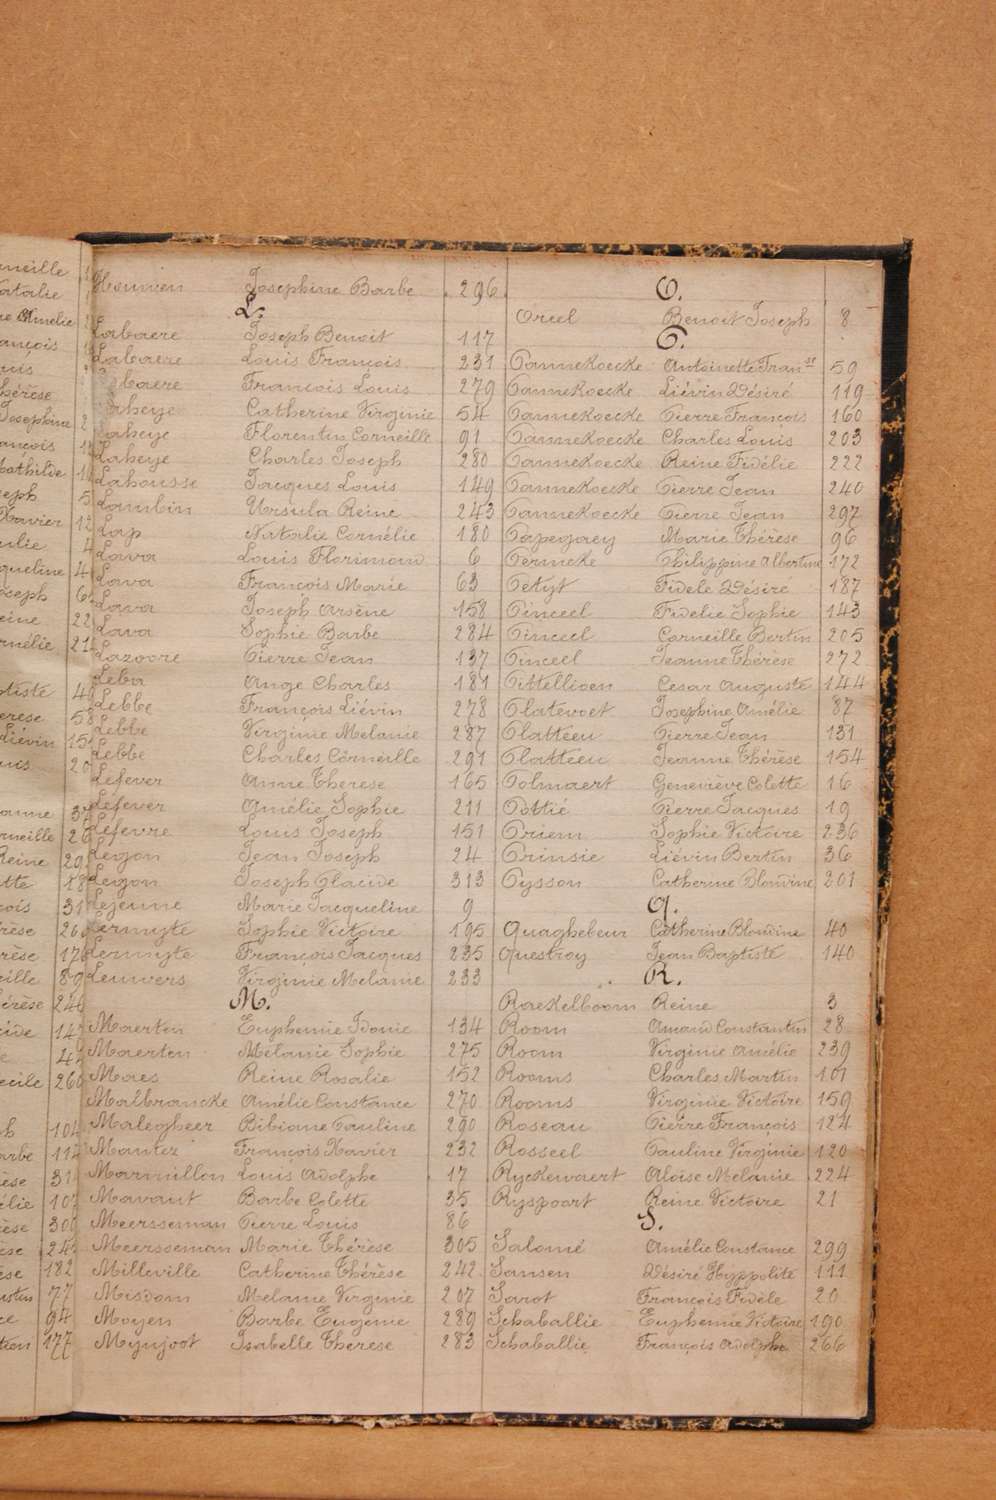 Houwen Josephine Barbe 296
L.
Labaere Joseph Benoit 117
Labaere Louis François 231
Labaere François Louis 279
Laheye Catherine Virginie 54
Laheye Florentin Corneille 91
Laheye Charles Joseph 280
Lahousse Jacques Louis 149
Lambin Ursula Reine 243
Lap Natalie Cornélie 180
Lava Louis Florimond 6
Lava François Marie 63
Lava Joseph Arsène 158
Lava Sophie Barbe 284
Lazoore Pierre Jean 137
Leba Ange Charles 181
Lebbe François Liévin 278
Lebbe Virginie Melanie 287
Lebbe Charles Corneille 291
Lefever Anne Therese 165
Lefever Amélie Sophie 211
Lefevre Louis Joseph 151
Legon Jean Joseph 24
Legon Joseph Placide 313
Lejeune Marie Jacqueline 9
Lermyte Sophie Victoire 195
Lermyte François Jacques 235
Leuwers Virginie Melanie 233
M.
Maerten Euphemie Idonie 134
Maerten Mélanie Sophie 275
Maes Reine Rosalie 152
Malbrancke Amélie Constance 270
Malegheer Bibiane Pauline 290
Mantez François Xavier 232
Marmillon Louis Adolphe 17
Mavaut Barbe Colette 35
Meersseman Pierre Louis 86
Meersseman Marie Thérèse 305
Milleville Catherine Thérèse 242
Misdom Melanie Virginie 207
Moyen Barbe Eugénie 289
Mynjoot Isabelle Therese 283
O.
Orcel Benoit Joseph 8
P.
Pannekoecke Antoinette Franse 59
Pannekoecke Liévin Désiré 119
Pannekoecke Pierre François 160
Pannekoecke Charles Louis 203
Pannekoecke Reine Fidélie 222
Pannekoecke Pierre Jean 240
Pannekoecke Pierre Jean 297
Papegaey Marie Thérèse 96
Permeke Philippine Albertine 172
Petyt Fidele Désiré 187
Pinceel Fidelie Sophie 143
Pinceel Corneille Bertin 205
Pinceel Jeanne Thérèse 272
Pittellioen Cesar Auguste 144
Platevoet Josephine Amélie 87
Platteeu Pierre Jean 131
Platteeu Jeanne Thérèse 154
Polmaert Geneviève Colette 16
Pottié Pierre Jacques 19
Priem Sophie Victoire 236
Prinsie Liévin Bertin 36
Pysson Catherine Blondine 201
Q.
Quaghebeur Catherine Blondine 40
Questroy Jean Baptiste 140
R.
Raekelboom Reine 3
Room Amand Constantin 28
Room Virginie Amélie 239
Rooms Charles Martin 101
Rooms Virginie Victoire 159
Roseau Pierre François 124
Rosseel Pauline Virginie 120
Ryckewaert Aloise Melanie 224
Ryspoort Reine Victoire 21
S.
Salomé Amélie Constance 299
Sansen Désiré Hyppolite 111
Sarot François Fidèle 20
Schaballie Euphemie Victoire 190
Schaballie François Adolphe 266